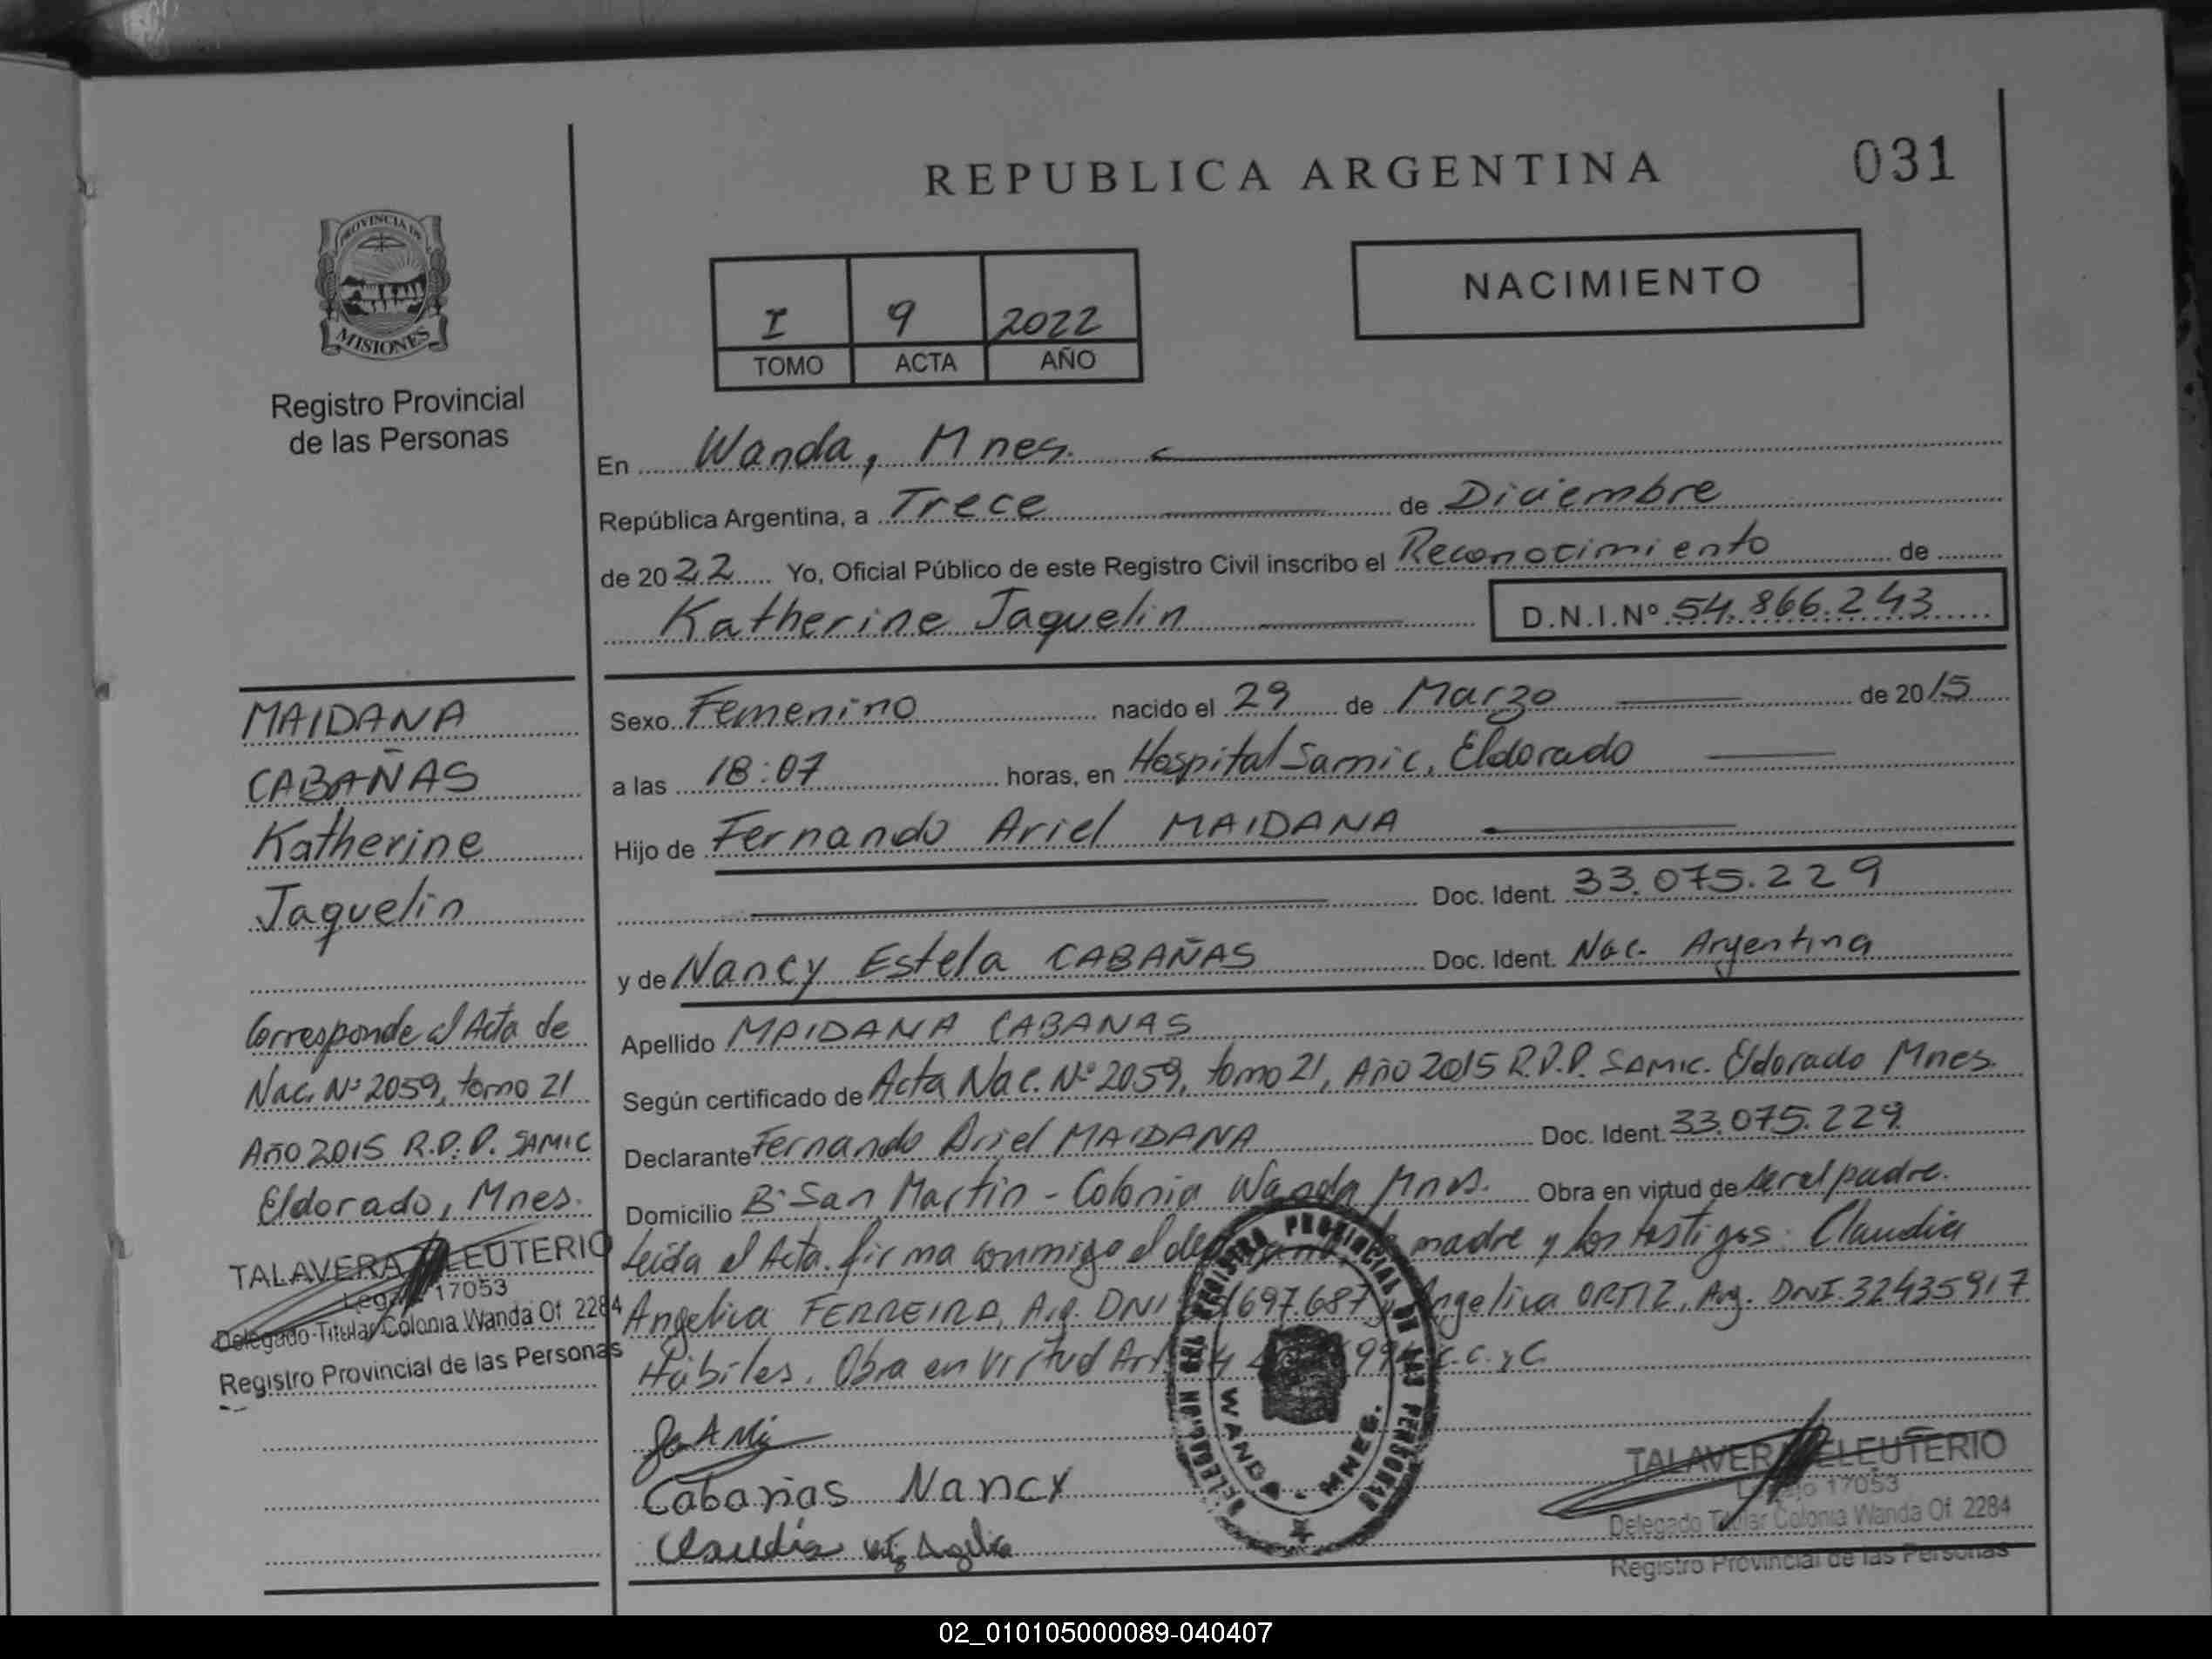 REPUBLICA ARGENTINA
031
PROVINCIA DE
MISIONES
Registro Provincial
de las Personas
I 9 2022
TOMO ACTA AÑO
NACIMIENTO
En Wanda, Mnes.
República Argentina, a Trece de Diciembre
de 2022 Yo, Oficial Público de este Registro Civil inscribo el Reconocimiento de
Katherine Jaquelin D.N.I.Nº 54.866.243
Sexo Femenino nacido el 29 de Marzo de 2015
a las 18:07 horas, en Hospital Samic, Eldorado
Hijo de Fernando Ariel MAIDANA
Doc. Ident. 33.075.229
y de Nancy Estela CABAÑAS Doc. Ident. Nac. Argentina
Apellido MAIDANA CABANAS
Según certificado de Acta Nac. Nº 2059, tomo 21, Año 2015 R.P.P. SAMIC. Eldorado Mnes.
Declarante Fernando Ariel MAIDANA Doc. Ident. 33.075.229
Domicilio Bº San Martin - Colonia Wanda Mnes. Obra en virtud de ser el padre.
Leida el Acta firma conmigo el madre y los testigos: Claudia
Angelica FERREIRA, Arg. DNI 697.687 y Angelica ORTIZ, Arg. DNI. 32435917
Hábiles. Obra en virtud Art C.C. y C
Cabañas Nancy
Claudia
MAIDANA
CABAÑAS
Katherine
Jaquelin
Corresponde al Acta de
Nac. Nº 2059, tomo 21
Año 2015 R.P.P. SAMIC
Eldorado, Mnes.
TALAVERA ELEUTERIO
Legajo 17053
Delegado Titular Colonia Wanda Of. 2284
Registro Provincial de las Personas
REGISTRO PROVINCIAL DE LAS PERSONAS
WANDA - MNES.
TALAVERA ELEUTERIO
Legajo 17053
Delegado Titular Colonia Wanda Of. 2284
Registro Provincial de las Personas
02_010105000089-040407